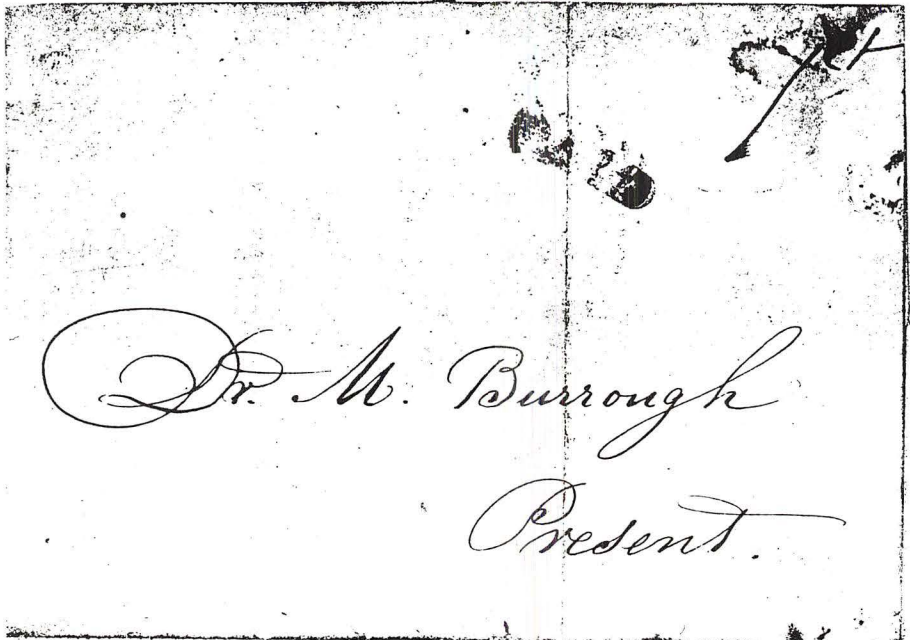 Dr. M. Burrough
Present.